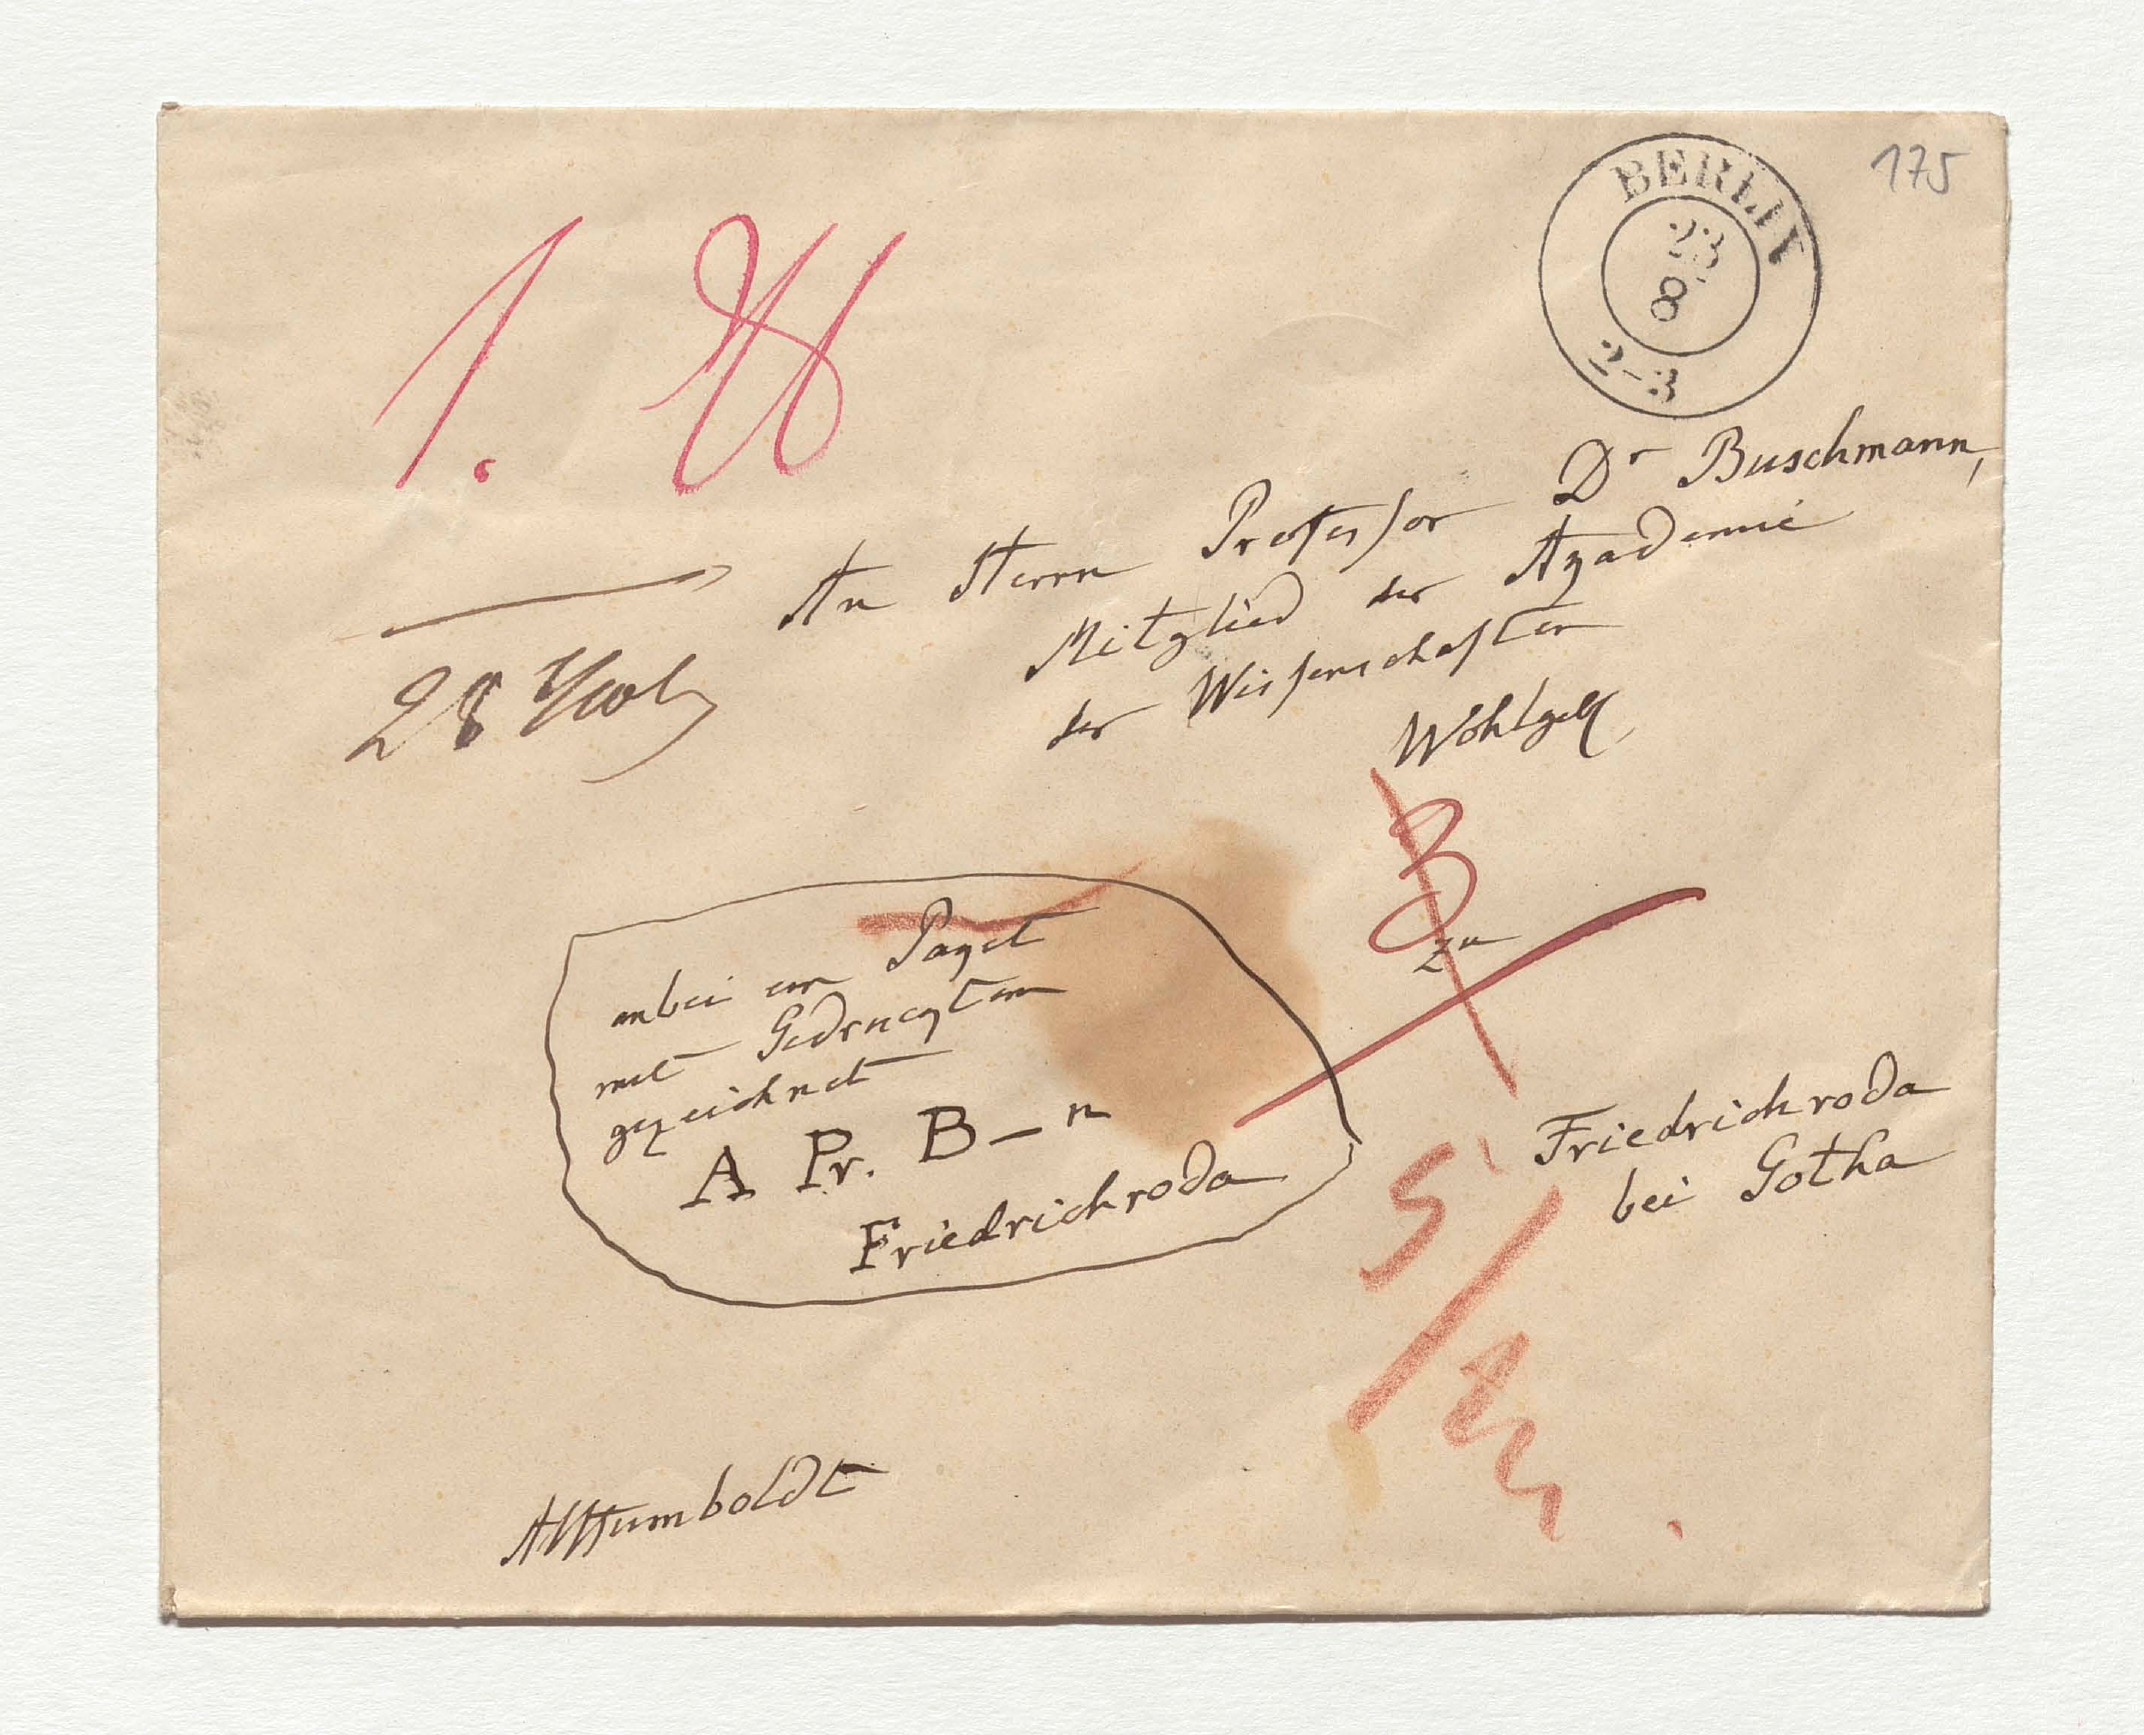 175
BERLIN
23
8
2-3
1.
An Herrn Professor Dr Buschmann,
Mitglied der Akademie
der Wissenschaften
Wohlgeb
28
3
zu
anbei ein Paket
mit Gedruckten
gezeichnet
A Pr. B—n
Friedrichroda
Friedrichroda
bei Gotha
5/
AlHumboldt